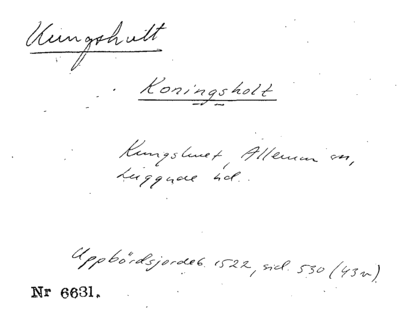 Kungshult
Koningsholt
Kungshult, Allerum sn,
Luggude hd.
Uppbördsjordeb. 1522, sid. 530 (43v)
Nr 6631.